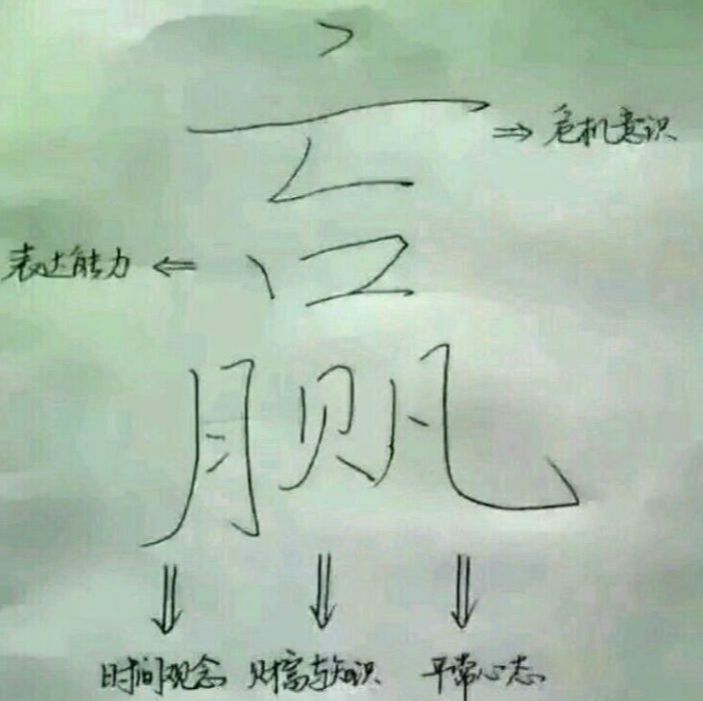 赢
⇒ 危机意识
表达能力 ⇐
时间观念 财富与知识 平常心态